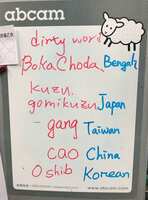 abcam
dirty word
BokaChoda Bengali
kuzu,
gomikuzu Japan
gang Taiwan
cao China
Oshib Korean
www.abcam.com